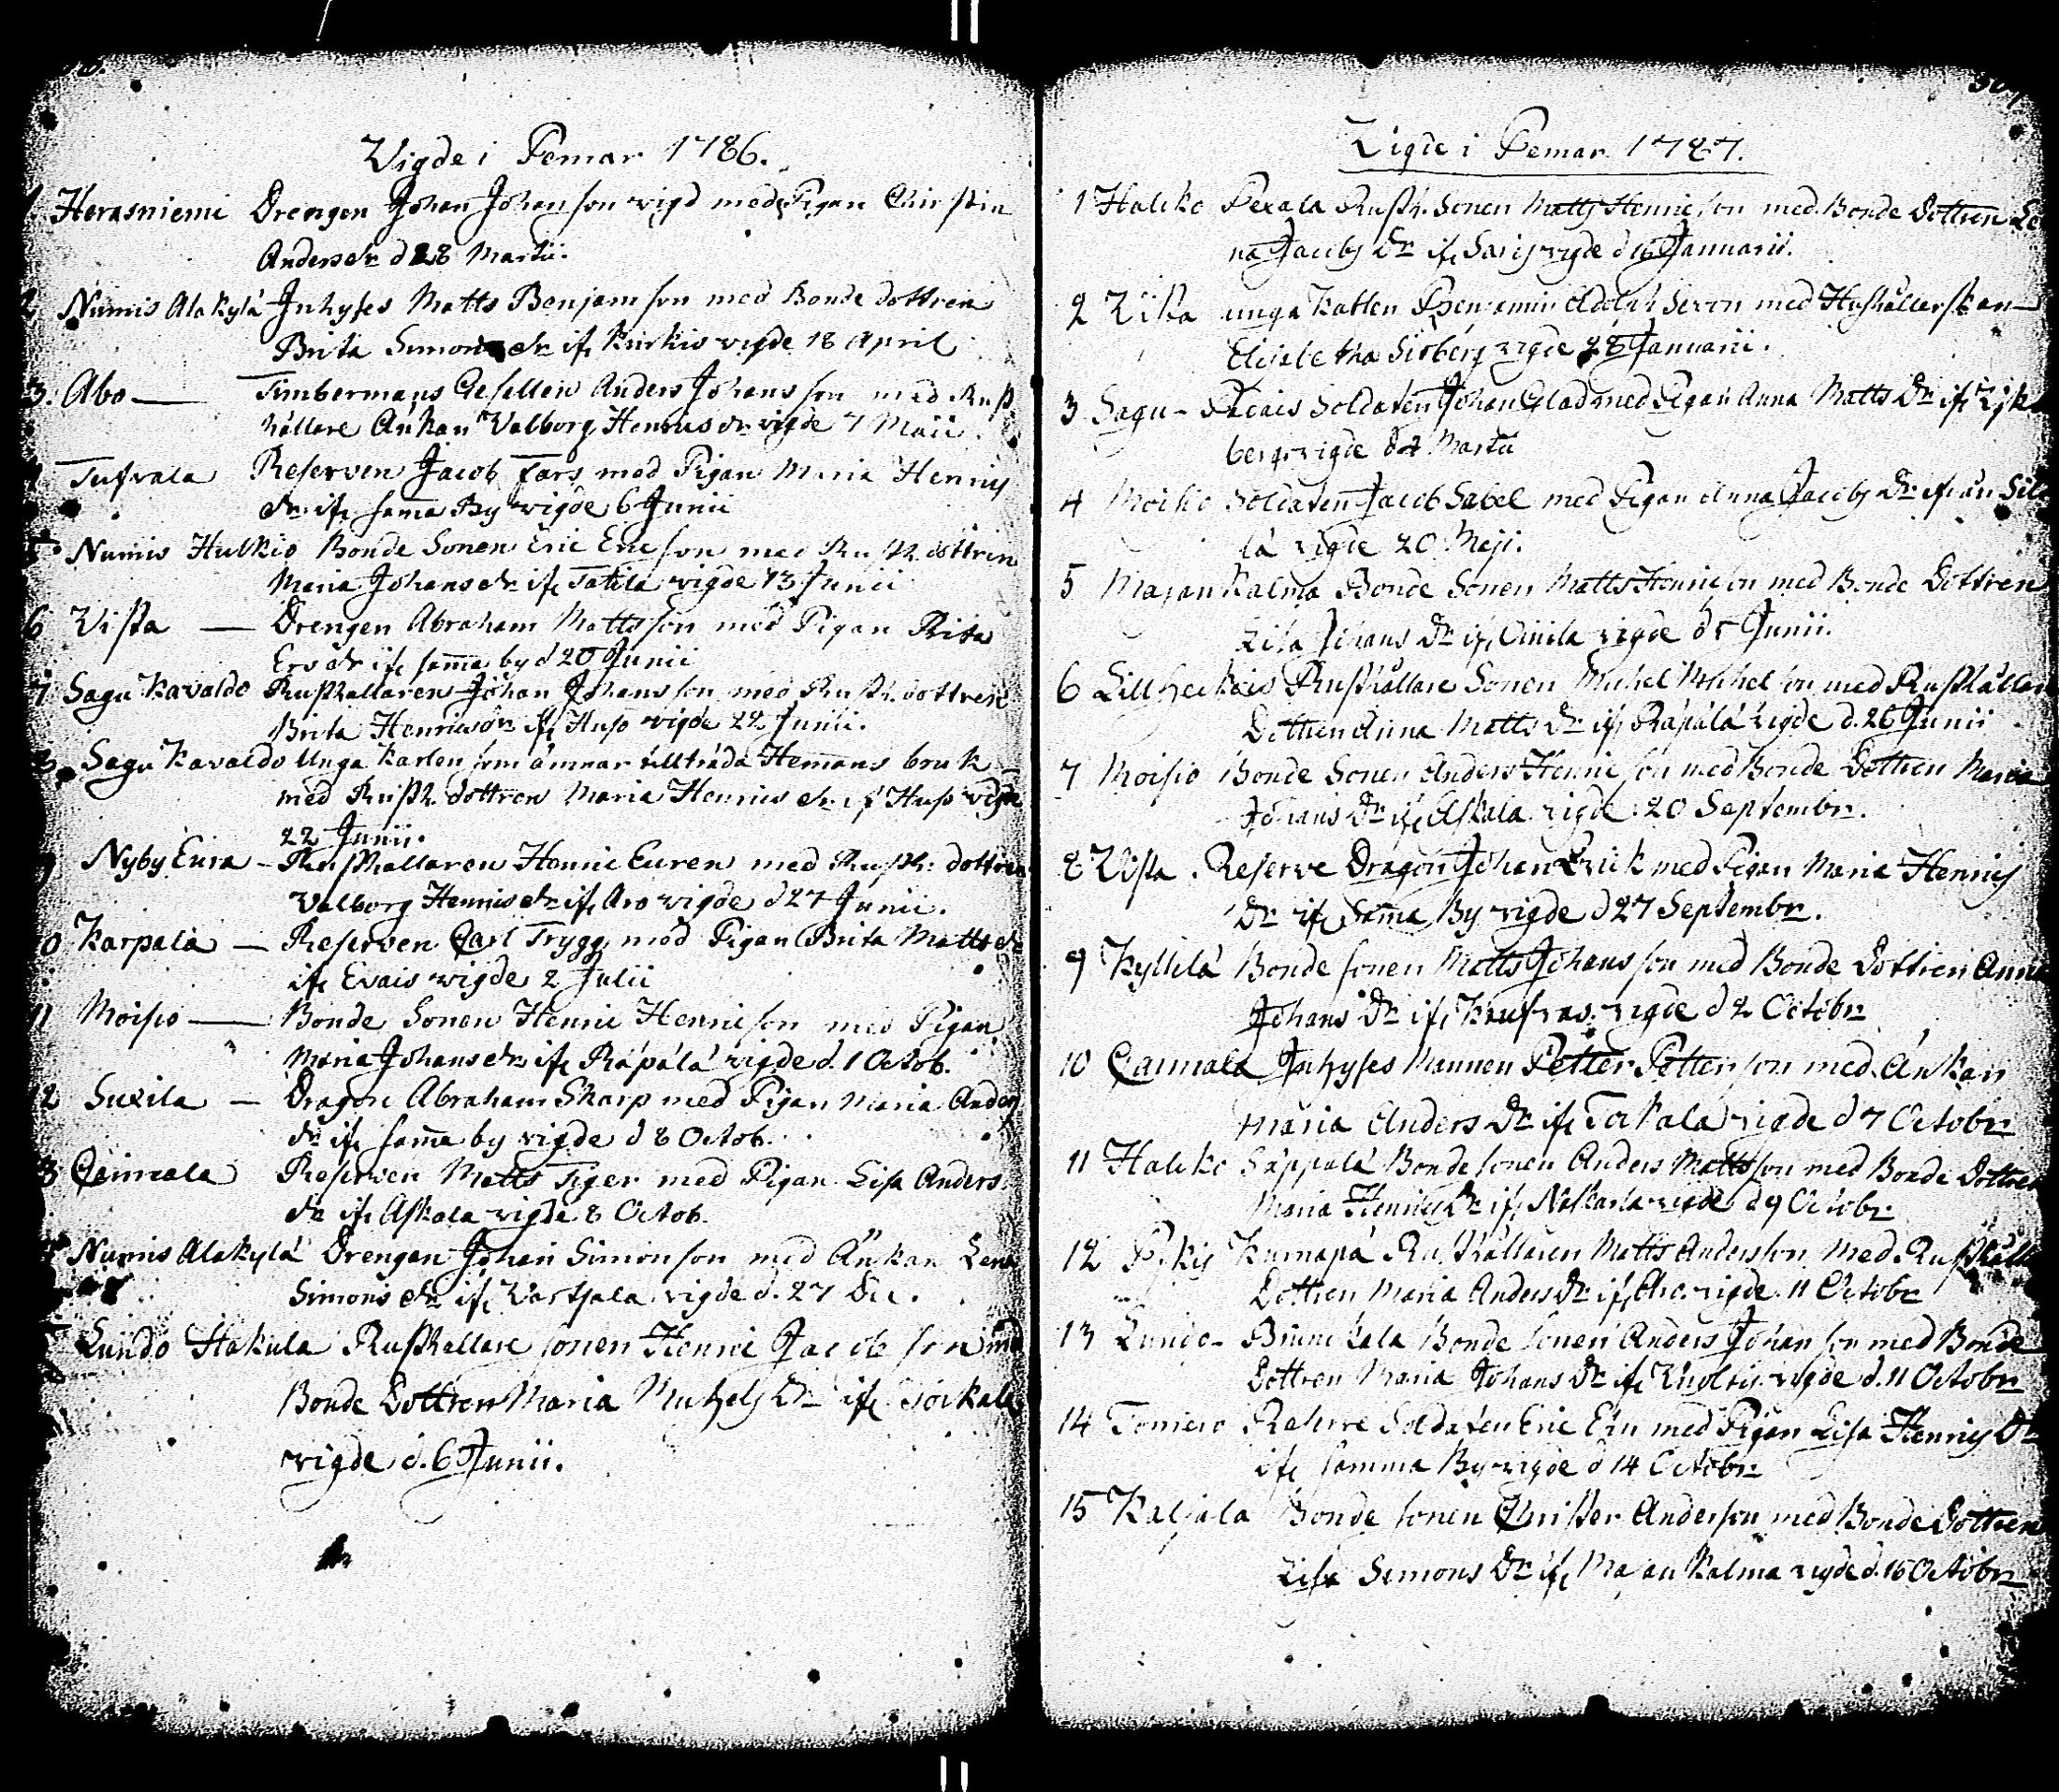 Vigde i Pemar 1786.
1 Herasniemi Drengen Johan Johansson vigd med Pigan Chirstin
Andersdr d 28 Martii.
2 Numis Alakylä Inhyses Matts Benjamson med Bonde dottren
Brita Simonsdr ifr Kuirkio vigde 18 April
3. Åbo — Timbermans Gesellen Anders Johansson med Rust
hållare Änkan Valborg Henricsdr vigde 7 Maii.
Tufvala Reserven Jacob Fars med Pigan Maria Henrics
dr ifr sama By vigde 6 Junii
Numis Hulkio Bonde Sonen Eric Ericson med Rusth. dottren
Maria Johansdr ifr Tatila vigde 13 Junii
6 Vista — Drengen Abraham Mattsson med Pigan Brita
Ersdr ifr sama by d 20 Junii
7 Sagu Kavaldo Rusthållaren Johan Johansson med Rusth. dottren
Brita Henricsdr ifr Huso vigde 22 Junii.
8 Sagu Kavaldo Unga Karlen som ämnar tillträda Hemans bruk
med Rusth. dottren Maria Henricsdr ifr Huso vigde
22 Junii.
9 Nyby Eura - Rusthållaren Henric Euren med Rusth: dottren
Valborg Henricsdr ifr Aro vigde d 27 Junii.
0 Karpala — Reserven Carl Trygg med Pigan Brita Mattsdr
ifr Evais vigde 2 Julii
11 Moisio — Bonde Sonen Henric Henricson med Pigan
Maria Johansdr ifr Räpälä vigde d. 1 Octob.
12 Suxila — Dragon Abraham Skarp med Pigan Maria Anders
dr ifr sama by vigde d 8 Octob.
3 Caimala Reserven Matts Tiger med Pigan Lisa Anders
dr ifr Askala vigde 8 Octob.
Numis Alakylä Drengen Johan Simonson med Änkan Lena
Simons dr ifr Vartsala vigde d. 27 Dec.
Lundo Hakula Rusthållare sonen Henric Jacobson med
Bonde Dottren Maria Michels Dr ifr Torkala
vigde d. 6 Junii.
Vigde i Pemar 1787.
1 Haliko Pexala Rusth. Sonen Matts Henricson med Bonde Dottren Le
na Jacobs Dr ifr Saris vigde d 16 Januarii.
2 Viksa unga Karlen Benjamin Adolph Seron med Hushållerskan
Elisabetha Siöberg vigde 28 Januarii.
3 Sagu - Pacais Soldaten Johan Glad med Pigan Anna Matts Dr ifr Vik
berg vigde d 4 Martii
4 Moisio Soldaten Jacob Sabel med Pigan Anna Jacobs Dr ifr Sil
lä vigde 20 Maji.
5 Majankalma Bonde Sonen Matts Henricson med Bonde Dottren
Lisa Johans Dr ifr Oinila vigde d 5 Junii.
6 Lill Heikois Rusthållare Sonen Michel Michelson med Rusthållare
Dottren Anna Matts Dr ifr Räpälä vigde d. 26 Junii
7 Moisio Bonde Sonen Anders Henricson med Bonde Dottren Maria
Johans Dr ifr Askala vigde 20 Septembr.
8 Vista. Reserve Dragon Johan Brick med Pigan Maria Henrics
Dr ifr Sama By vigde d 27 Septembr.
9 Kyllilä Bonde sonen Matts Johansson med Bonde Dottren Anna
Johans Dr ifr vigde d 2 Octobr
10 Caimala Inhyses Mannen Petter Petterson med Änkan
Maria Anders Dr ifr Torkala vigde d 7 Octobr
11 Haliko Säppälä Bonde sonen Anders Mattsson med Bonde Dottren
Maria Henrics Dr ifr Naskarla vigde d 9 Octobr
12 Pikis Kumapä Rusthållaren Matts Andersson Med Rusthåll
Dottren Maria Anders Dr ifr Aro vigde 11 Octobr
13 Lundo - Bonde sonen Anders Johanson med Bonde
Dottren Maria Johans Dr ifr vigde d. 11 Octobr
14 Toniero Reserve Soldaten Eric Ern med Pigan Lisa Henrics Dr
ifr samma By vigde d 14 Octobr
15 Kaljala Bonde sonen Christer Anderson med Bonde Dottren
Lisa Simons Dr ifr Majankalma vigde d. 16 Octobr